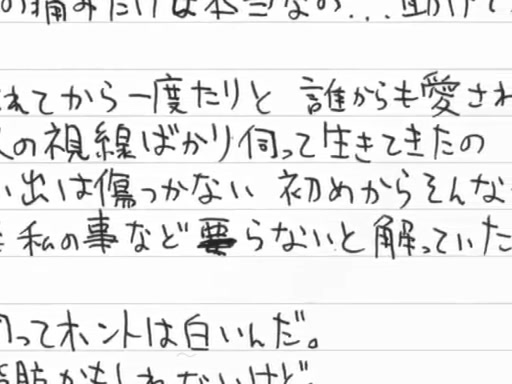 の痛みだけは本当なの...助けて
れてから一度たりと 誰からも愛され
の視線ばかり伺って生きてきたの
い出は傷つかない 初めからそんな
私の事など要らないと解っていた
ってホントは白いんだ。
脂肪かもしれないけど